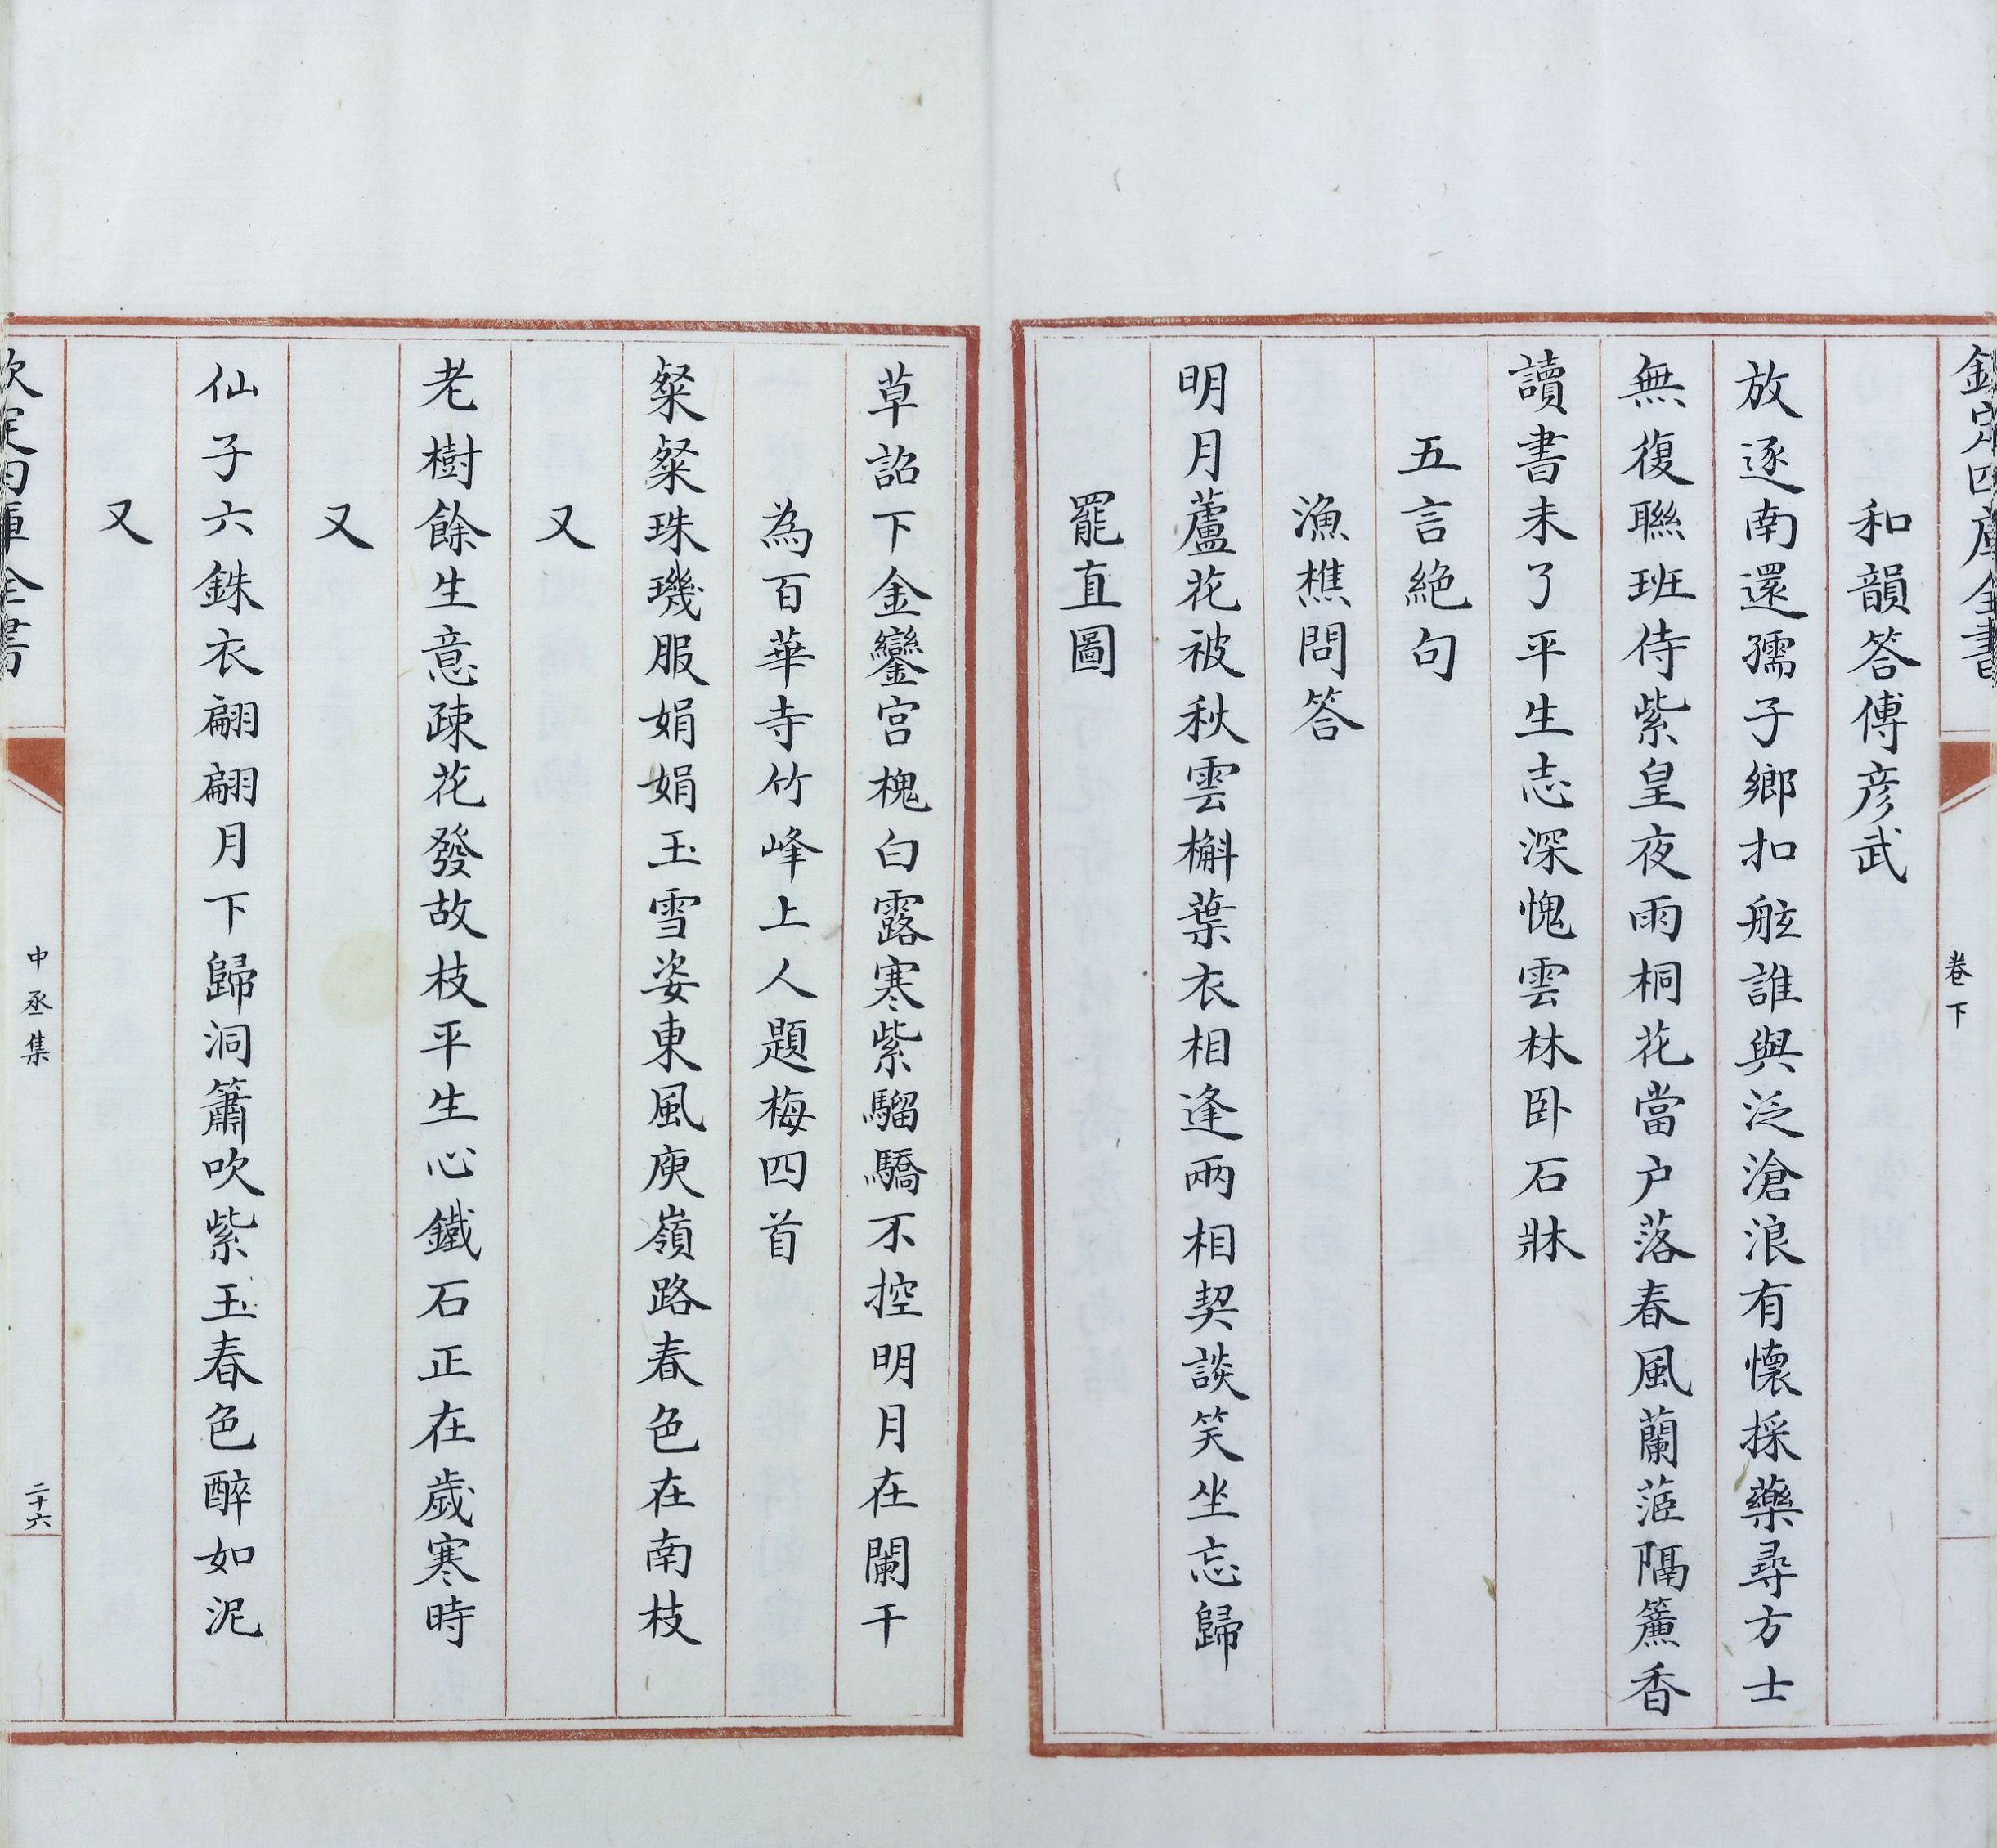 欽定四庫全書
卷下
和韻答傅彦武
放逐南還孺子鄉扣舷誰與泛滄浪有懷採藥尋方士
無復聯班侍紫皇夜雨桐花當户落春風蘭茝隔簾香
讀書未了平生志深愧雲林卧石牀
五言絶句
漁樵問答
明月蘆花被秋雲槲葉衣相逢兩相契談笑坐忘歸
罷直圖
草詔下金鑾宫槐白露寒紫騮驕不控明月在闌干
為百華寺竹峰上人題梅四首
粲粲珠璣服娟娟玉雪姿東風庾嶺路春色在南枝
又
老樹餘生意疎花發故枝平生心鐵石正在歲寒時
又
仙子六銖衣翩翩月下歸洞簫吹紫玉春色醉如泥
又
欽定四庫全書
中丞集
二十六